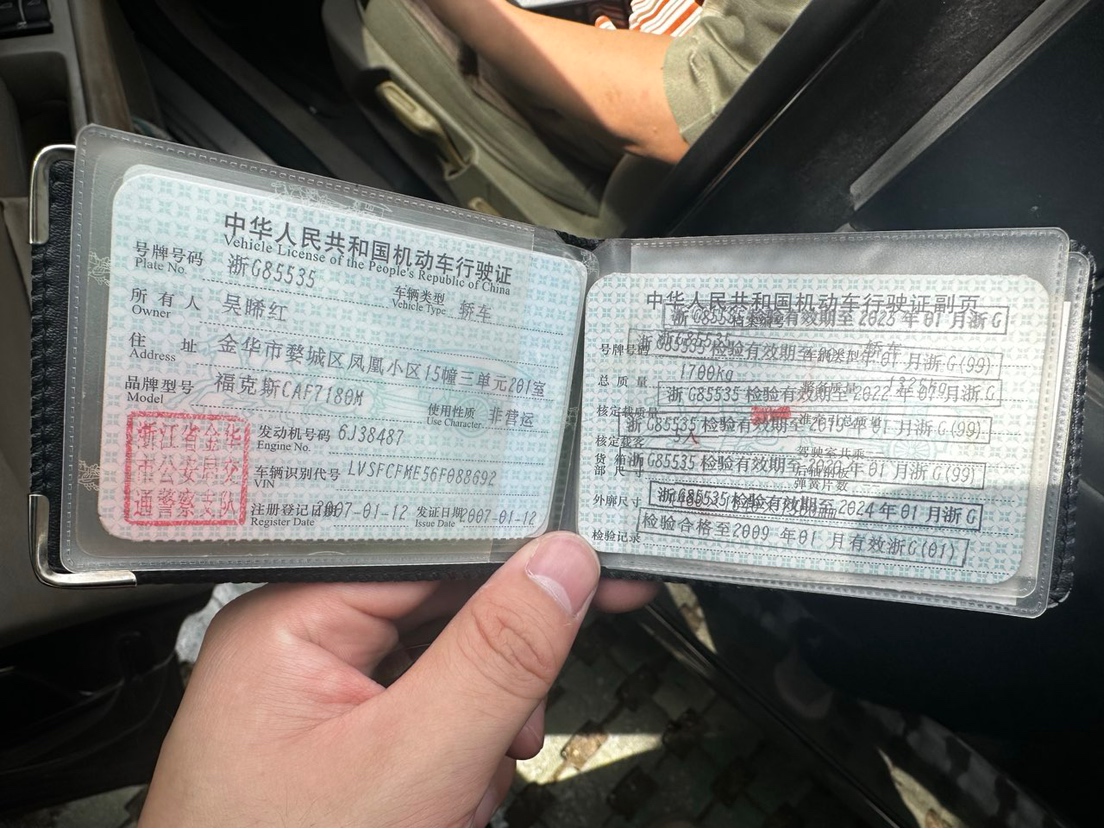 中华人民共和国机动车行驶证
Vehicle License of the People's Republic of China
号牌号码 浙G85535 车辆类型 轿车
Plate No. Vehicle Type
所有人 吴晞红
Owner
住址 金华市婺城区凤凰小区15幢三单元201室
Address
品牌型号 福克斯CAF7180M 使用性质 非营运
Model Use Character
浙江省金华
市公安局交
通警察支队
发动机号码 6J38487
Engine No.
车辆识别代号 LVSFCFME56F088692
VIN
注册登记日期 2007-01-12 发证日期 2007-01-12
Register Date Issue Date
中华人民共和国机动车行驶证副页
浙G85535 检验有效期至2023年01月浙G
号牌号码 浙G85535 车辆类型 轿车
G85535 检验有效期至 年01月浙G(99)
总质量 1700kg 整备质量
浙G85535 检验有效期至2022年07月浙G
核定载质量 准牵引总质量
G85535 检验有效期至 年01月浙G(99)
核定载客 5人 驾驶室共乘
G85535 检验有效期至 年01月浙G(99)
弹簧片数
外廓尺寸
浙G85535 检验有效期至2024年01月浙G
检验记录
检验合格至2009年01月有效浙G(01)